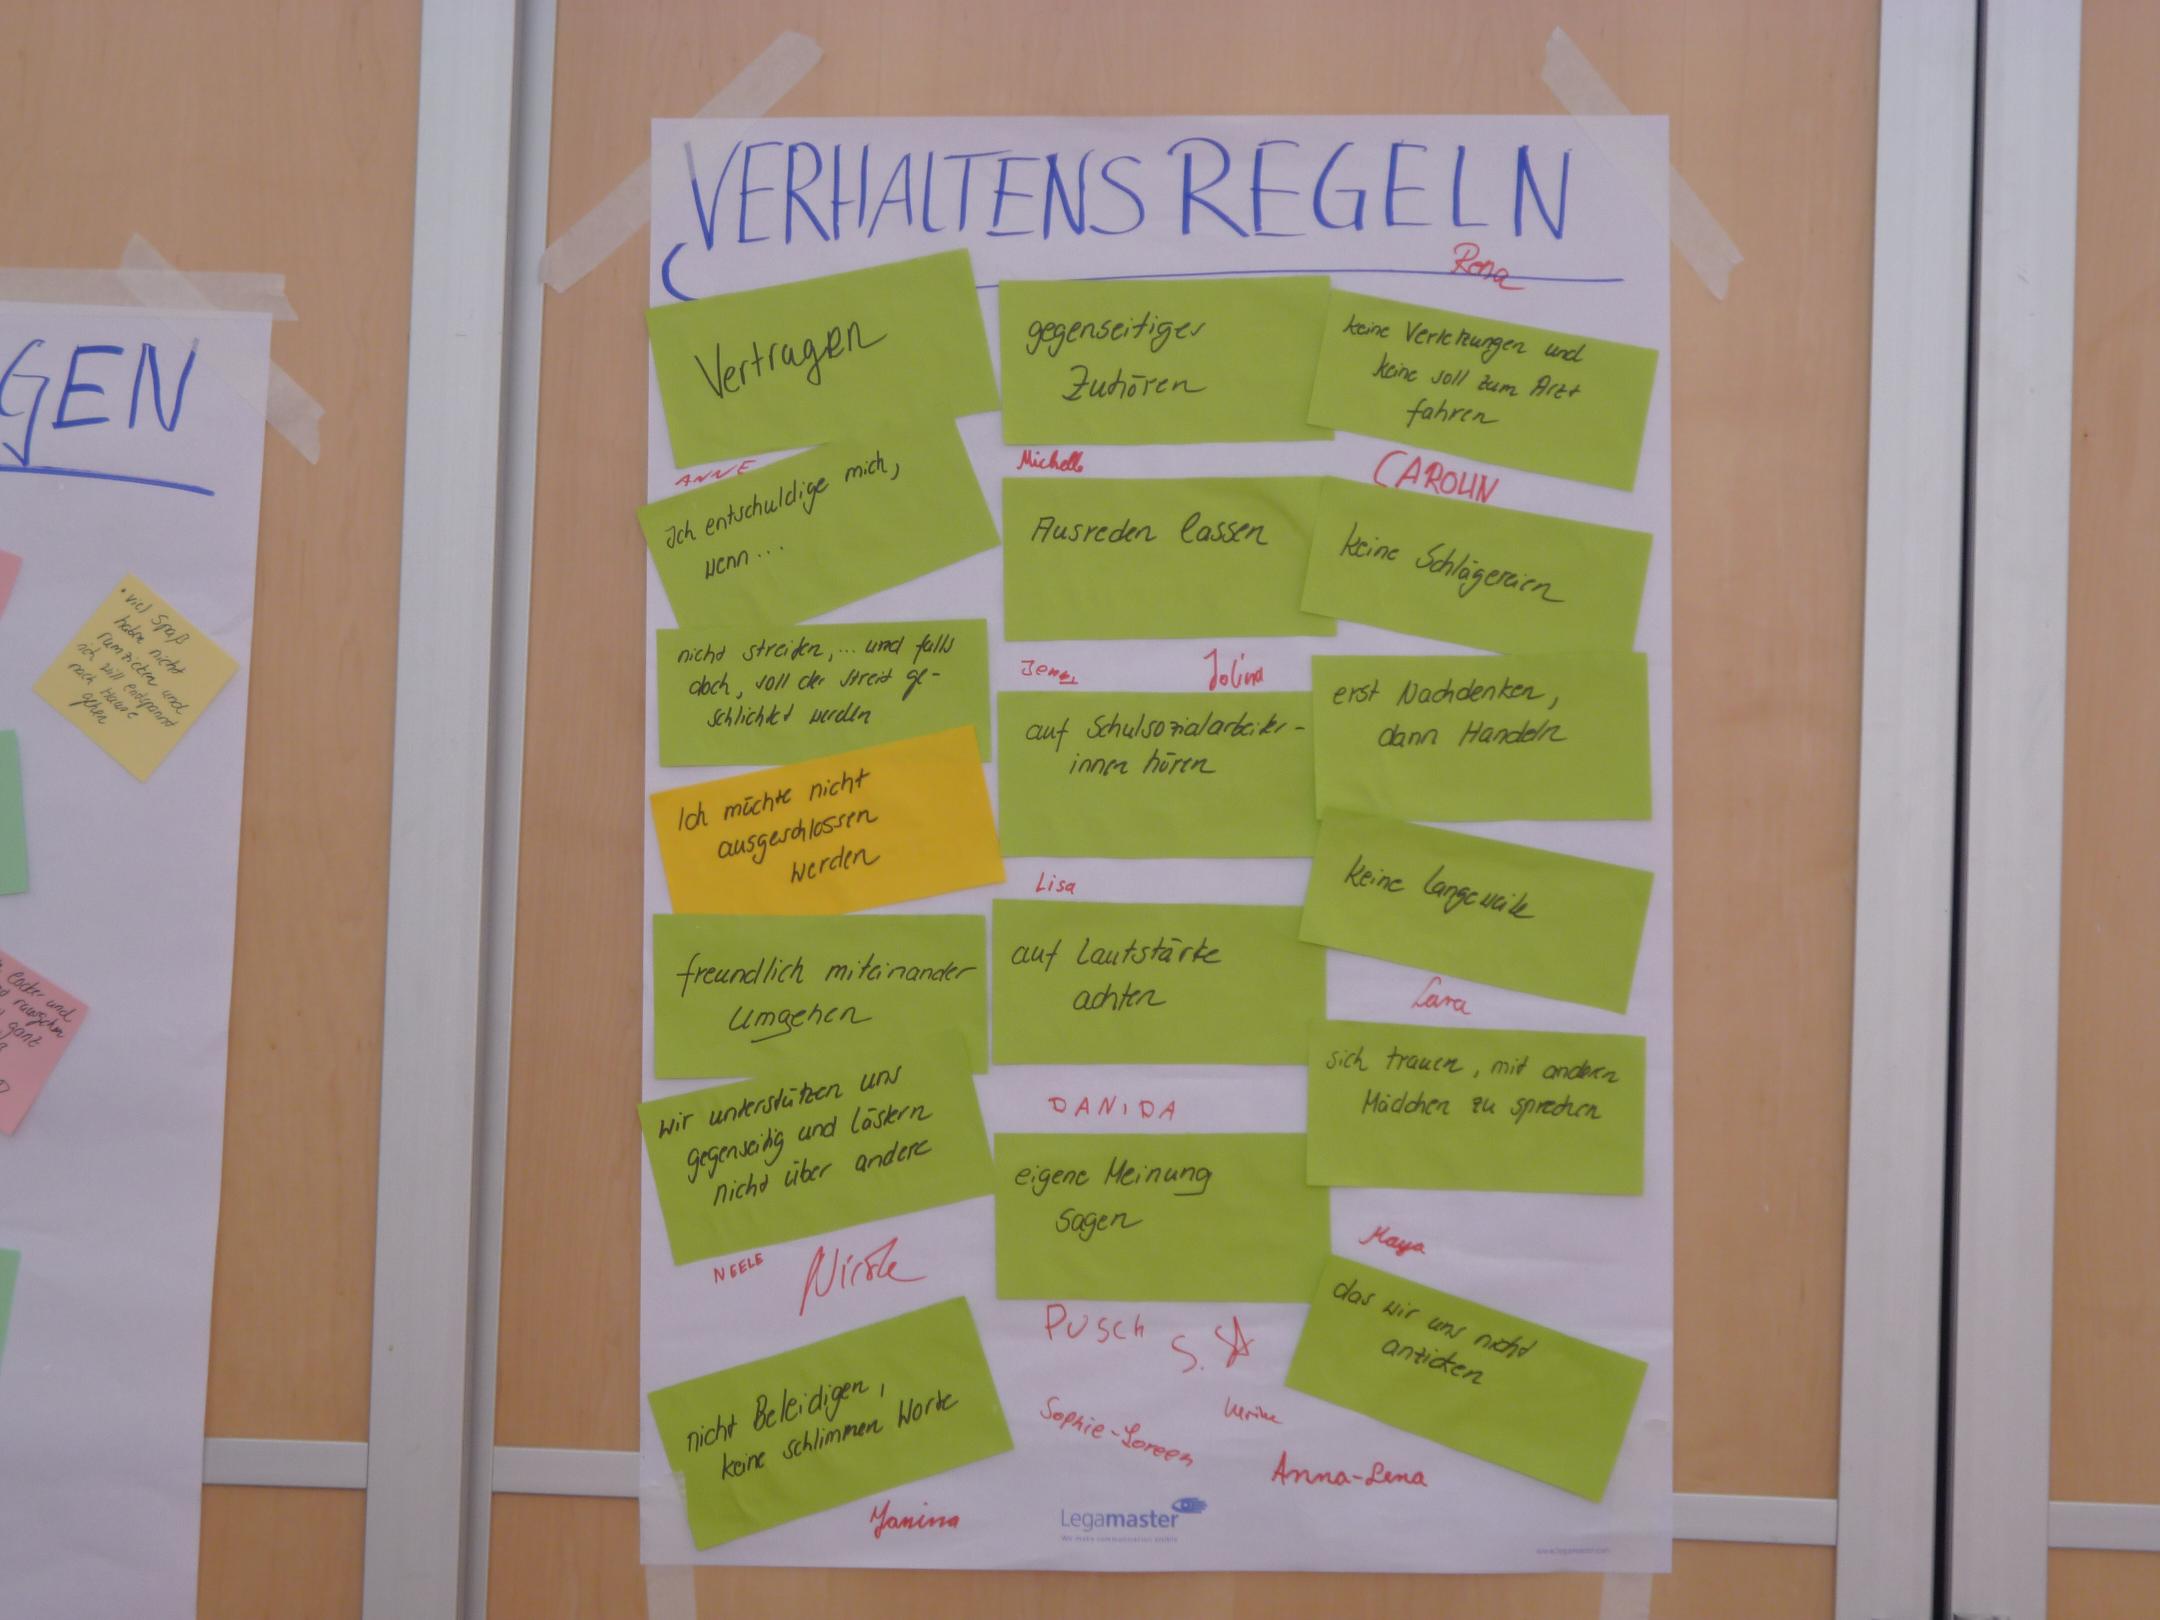 VERHALTENSREGELN
Rona
Vertragen
ANNE
Ich entschuldige mich,
wenn...
nicht streiten,... und falls
doch, soll der Streit ge-
schlichtet werden
Ich möchte nicht
ausgeschlossen
werden
freundlich miteinander
Umgehen
wir unterstützen uns
gegenseitig und lästern
nicht über andere
NEELE
Nicole
nicht Beleidigen,
keine schlimmen Worte
Janina
gegenseitiges
Zuhören
Michelle
Ausreden lassen
Jenny
Jolina
auf Schulsozialarbeiter-
innen hören
Lisa
auf Lautstärke
achten
DANIDA
eigene Meinung
sagen
PUSCH
S.
Sophie-Loreen
Ulrike
Anna-Lena
keine Verletzungen und
keine soll zum Arzt
fahren
CAROLIN
keine Schlägereien
erst Nachdenken,
dann Handeln
keine Langeweile
Lara
sich trauen, mit anderen
Mädchen zu sprechen
Maya
das wir uns nicht
anzicken
Legamaster
We make communication visible
www.legamaster.com
GEN
• viel Spaß
haben nicht
rumzicken und
ich will entspannt
nach Hause
gehen
locker und
ganz